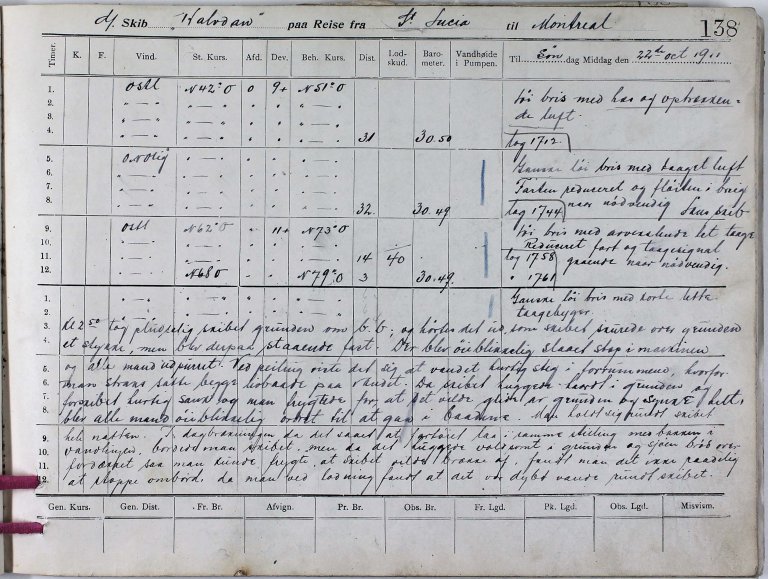 D/ Skib "Kalvdan" paa Reise fra St. Lucia til Montreal 138
Timer. K. F. Vind. St. Kurs. Afd. Dev. Beh. Kurs. Dist. Lod-skud. Baro-meter. Vandhøide i Pumpen. Til Søn dag Middag den 22de oct 1911
1. ostl N42°O 0 9+ N51°O
2. løi bris med has og optrækken-
3. de luft.
4. 31 30.50 log 1712
5. ONOlig Ganske løi bris med taaget luft
6. Farten reduceret og fløiten i brug
7. naar nødvendig
8. 32. 30.49 log 1744
9. ostl N62°O 11+ N73°O løi bris med let taage
10. Reduceret fart og taagesignal
11. 14 40 log 1758 gaaende naar nødvendig.
12. N68O N79°O 3 30.49. " 1761
1. Ganske løi bris med korte tette
2. taagebyger.
3. Kl 2 50 tog pludselig skibet grunden om b.b; og hørtes det ud som skibet skurede over grunden
4. et stykke, men blev derpaa staaende fast. Der blev øieblikkelig slaaet stop i maskinen
5. og alle mand udpurret. Ved peiling viste det sig at vandet hurtig steg i forrummene, hvorfor
6. man straks satte begge baade paa Da skibet huggede haardt i grunden og
7. forskibet hurtig sank og man frygtede for, at det vilde glide af grunden og synke helt,
8. blev alle mand øieblikkelig ordret til at gaa i baadene. Man holdt sig rundt skibet
9. hele natten. I dagbrækningen da det saaes at fartøiet laa i samme stilling med bakken i
10. vandlinjen, bordede man skibet, men da det huggede voldsomt i grunden og sjøen brøt over
11. fordækket saa man kunde frygte, at skibet vilde brække af, fandt man det ikke raadelig
12. at stoppe ombord, da man ved lodning fandt at det var dybt vande rundt skibet.
Gen. Kurs. Gen. Dist. Fr. Br. Afvign. Pr. Br. Obs. Br. Fr. Lgd. Pk. Lgd. Obs. Lgd. Misvism.